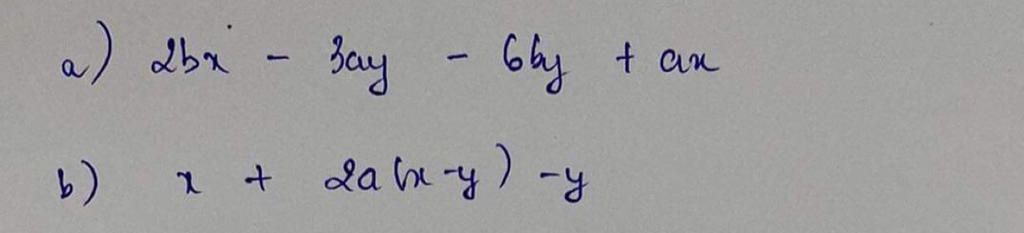 a) 2bx - 3ay - 6by + ax
b) x + 2a(x-y) -y